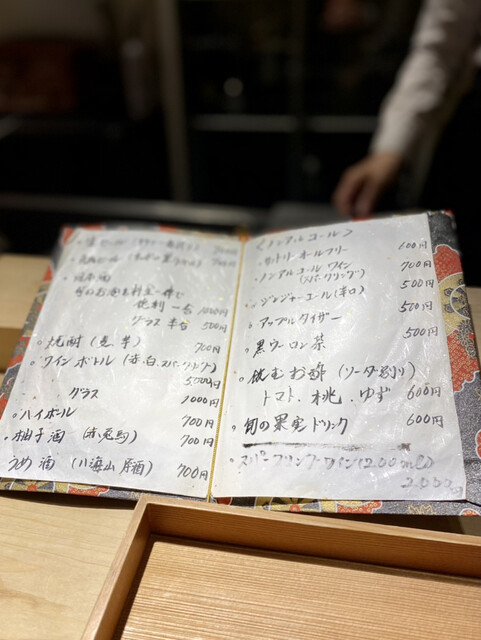 700円
700円
・日本酒
徳利 一合 1000円
グラス 半合 500円
・焼酎 (麦 芋) 700円
・ワイン ボトル (赤、白、スパークリング)
5000円
グラス 1000円
・ハイボール 700円
・柚子酒 (赤兎馬) 700円
うめ酒 (八海山 原酒) 700円
<ノンアルコール>
・サントリー オールフリー 600円
・ノンアルコールワイン 700円
(スパークリング)
・ジンジャーエール (辛口) 500円
・アップルタイザー 500円
・黒ウーロン茶 500円
・飲むお酢 (ソーダ割り)
トマト、桃、ゆず 600円
・旬の果実ドリンク 600円
・スパークリングワイン (200ml)
2.000円